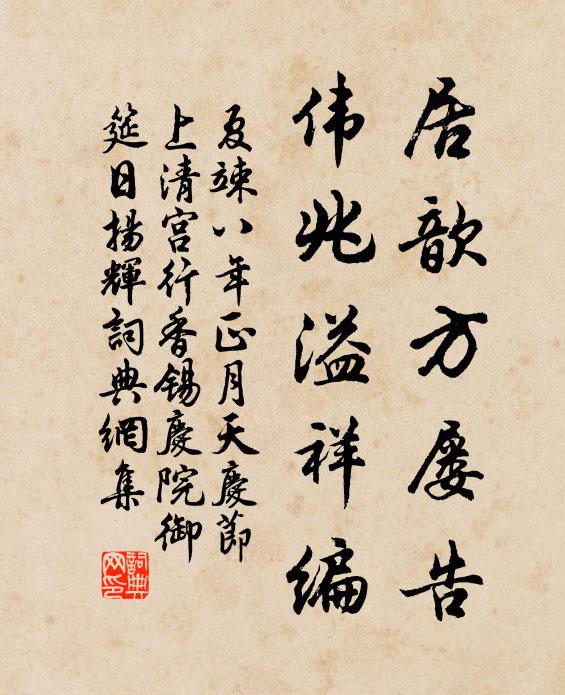 居歆方屡告
伟兆溢祥编
夏竦八年正月天慶節
上清宫行香锡慶院御
筵日揚輝詞典網集
詞典网印